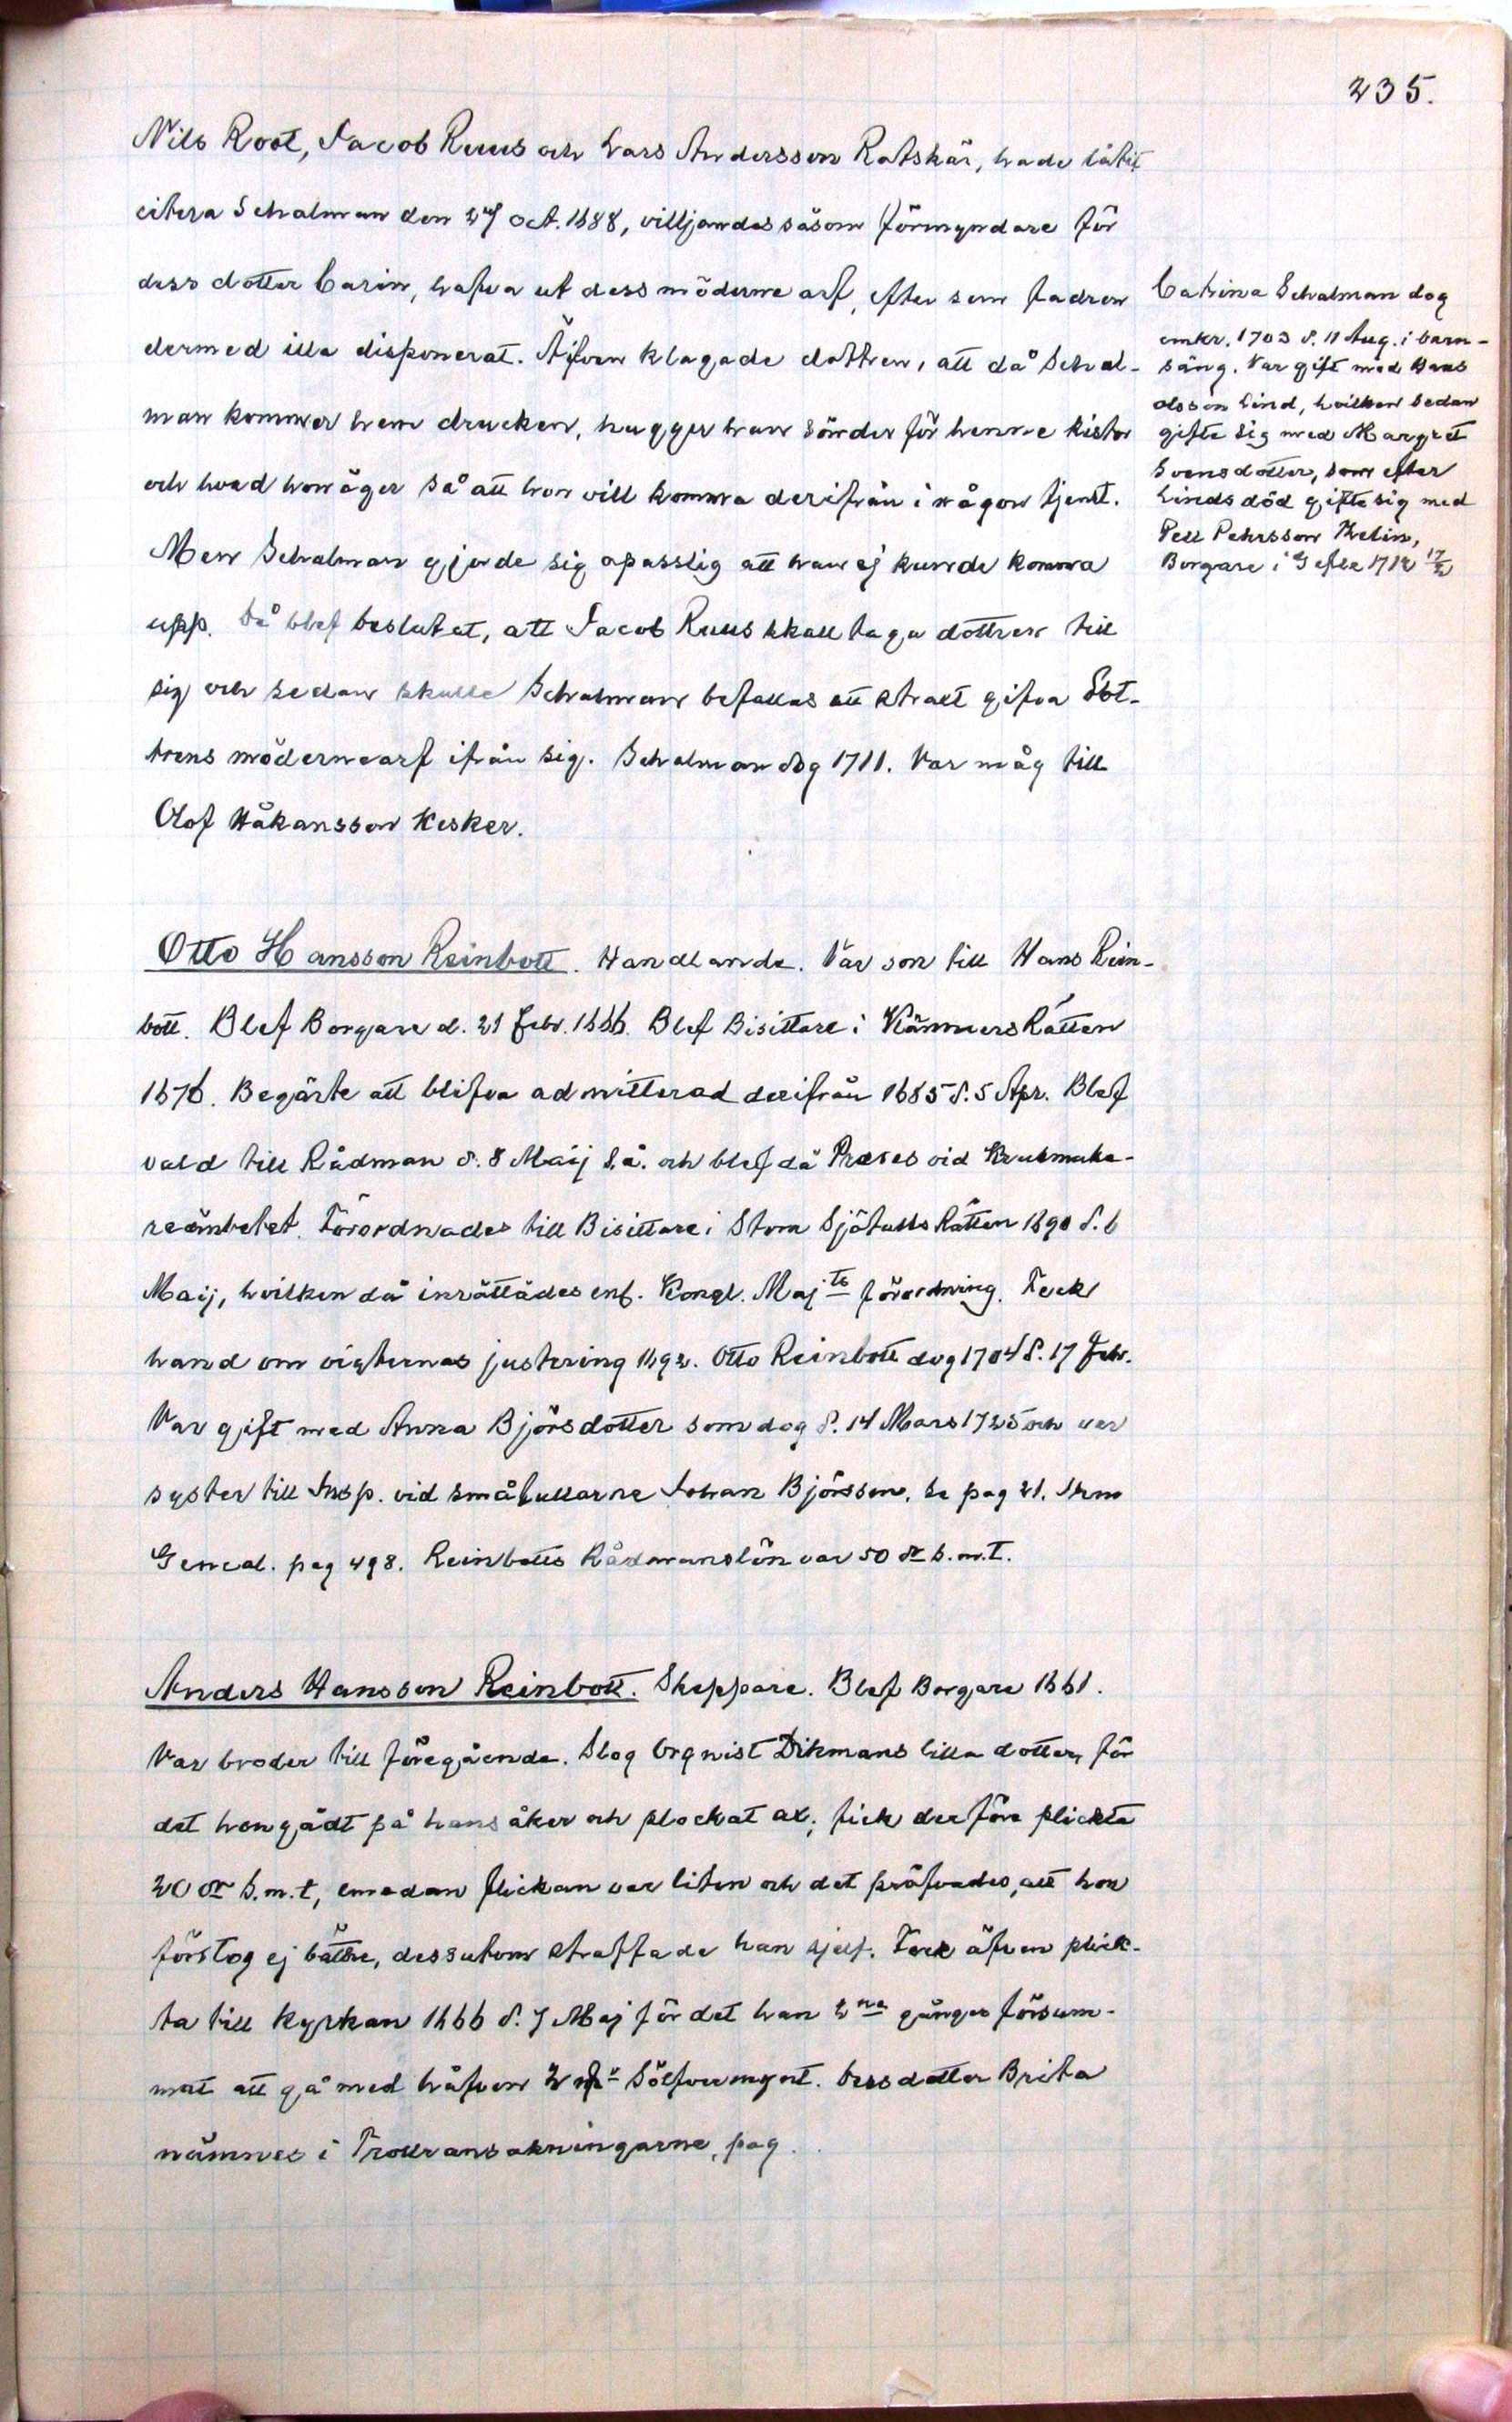 235.
Nils Root, Jacob Ruus och Lars Andersson Ratskär, hade låtit
citera Schalman den 27 Oct. 1688, villjandes såsom förmyndare för
dess dotter Carin, hafva ut dess möderne arf, efter som fadren
dermed illa disponerat. Äfven klagade dottren, att då Schal-
man kommer hem drucken, hugger han sönder för henne kistor
och hvad hon äger så att hon vill komma derifrån i någon tjenst.
Men Schalman gjorde sig opasslig att han ej kunde komma
upp. Då blef beslutat, att Jacob Ruus skall taga dottren till
sig och sedan skulle Schalman befallas att strakt gifva Dot-
trens mödernearf ifrån sig. Schalman dog 1711. Var måg till
Olof Håkansson Kesker.
Catrina Schalman dog
omkr. 1703 d. 11 Aug. i barn-
säng. Var gift med Hans
Olsson Lind, hvilken sedan
gifte sig med Margret
Svensdotter, som efter
Linds död gifte sig med
Pell Pehrsson Thelin,
Borgare i Gefle 1712 17/2
Otto Hansson Reinbott. Handlande. Var son till Hans Rein-
bott. Blef Borgare d. 21 Febr. 1666. Blef Bisittare i KämnersRätten
1676. Begärte att blifva admitterad derifrån 1685 d. 5 Apr. Blef
vald till Rådman d. 8 Maij s.å. och blef då Præses vid Krukmaka-
reämbetet. Förordnades till Bisittare i Stora SjötullsRätten 1690 d. 6
Maij, hvilken då inrättades enl. Kongl. Maj:ts förordning. Feck
hand om vigternas justering 1692. Otto Reinbott dog 1704 d. 17 Febr.
Var gift med Anna Björsdotter som dog d. 14 Mars 1725 och var
syster till Insp. vid småtullarne Johan Björsson, se pag 21.
Geneal. pag 498. Reinbotts Rådmanslön var 50 dr s.m.t.
Anders Hansson Reinbott. Skeppare. Blef Borgare 1661.
Var broder till föregående. Slog Orgnist Dikmans lilla dotter, för
det hon gådt på hans åker och plockat ax; fick derföre plickta
20 dr s.m.t, emedan flickan var liten och det pröfvades, att hon
förstog ej bättre, dessutom straffade han sjelf. Feck äfven plick-
ta till kyrkan 1666 d. 7 Maj för det han 2ne gånger försum-
mat att gå med håfven 2 mk Sölfvermynt. Dess dotter Brita
nämnes i Trollransakningarne, pag.